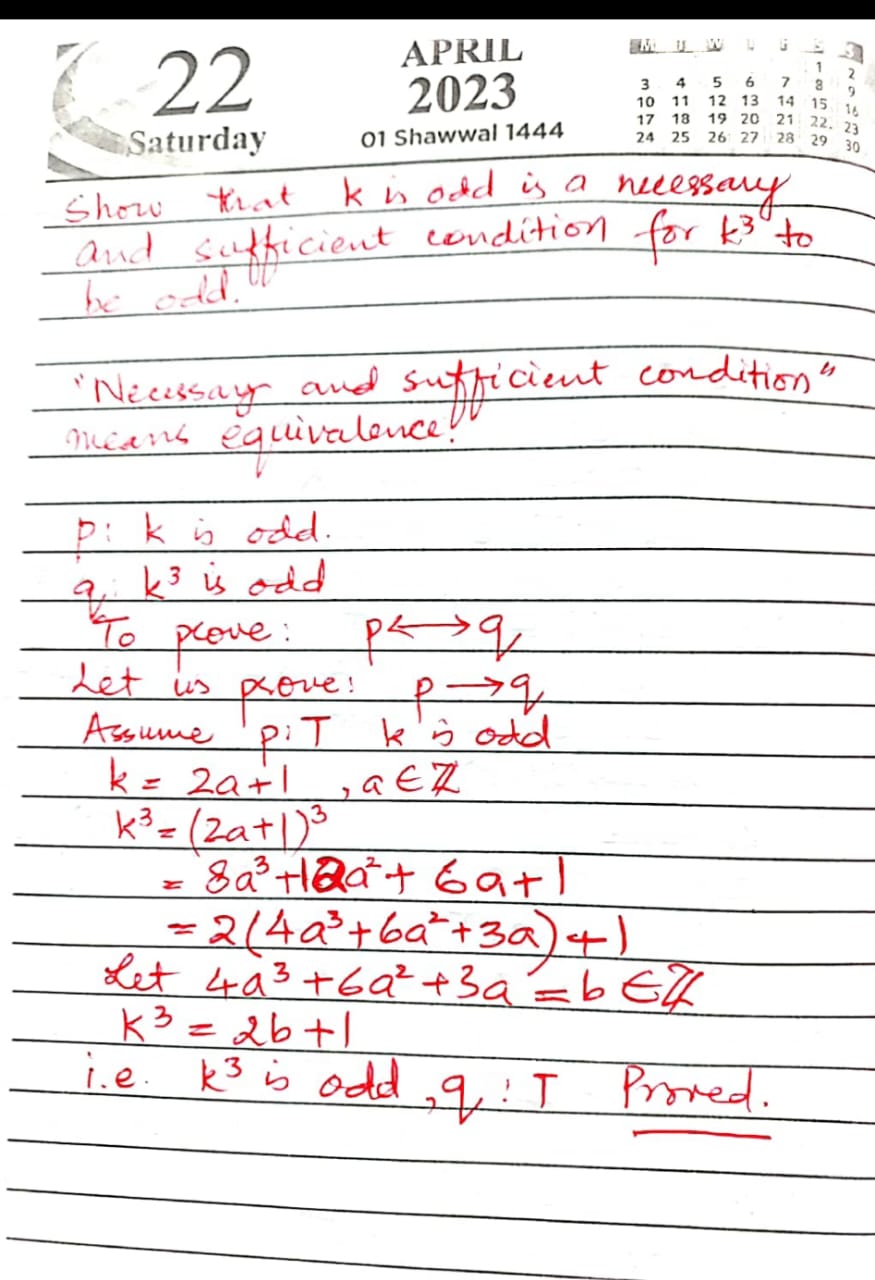 22
Saturday
APRIL
2023
01 Shawwal 1444
M T W T F S S
1 2
3 4 5 6 7 8 9
10 11 12 13 14 15 16
17 18 19 20 21 22 23
24 25 26 27 28 29 30
Show that k is odd is a necessary
and sufficient condition for k³ to
be odd.
"Necessary and sufficient condition"
means equivalence!
p: k is odd.
q: k³ is odd
To prove: p⟷q
Let us prove: p→q
Assume p:T k is odd
k = 2a+1 , a∈ℤ
k³=(2a+1)³
= 8a³+12a²+6a+1
=2(4a³+6a²+3a)+1
Let 4a³+6a²+3a=b∈ℤ
k³=2b+1
i.e. k³ is odd, q:T Proved.